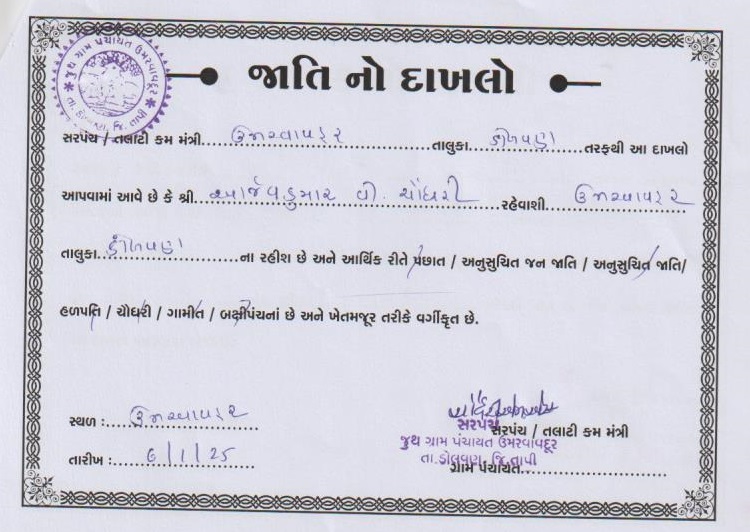 જુથ ગ્રામ પંચાયત ઉમરવાવદૂર
તા. ડોલવણ, જિ. તાપી
જાતિ નો દાખલો
સરપંચ / તલાટી કમ મંત્રી ઉમરવાવદુર તાલુકા ડોલવણ તરફથી આ દાખલો
આપવામાં આવે છે કે શ્રી આર્જવકુમાર વી. ચૌધરી રહેવાશી ઉમરવાવદુર
તાલુકા ડોલવણ ના રહીશ છે અને આર્થિક રીતે પછાત / અનુસુચિત જન જાતિ / અનુસુચિત જાતિ/
હળપતિ / ચૌધરી / ગામીત / બક્ષીપંચનાં છે અને ખેતમજૂર તરીકે વર્ગીકૃત છે.
સ્થળ : ઉમરવાવદુર
તારીખ : 6/1/25
સરપંચ
સરપંચ / તલાટી કમ મંત્રી
જુથ ગ્રામ પંચાયત ઉમરવાવદૂર
તા.ડોલવણ, જિ.તાપી
ગ્રામ પંચાયત